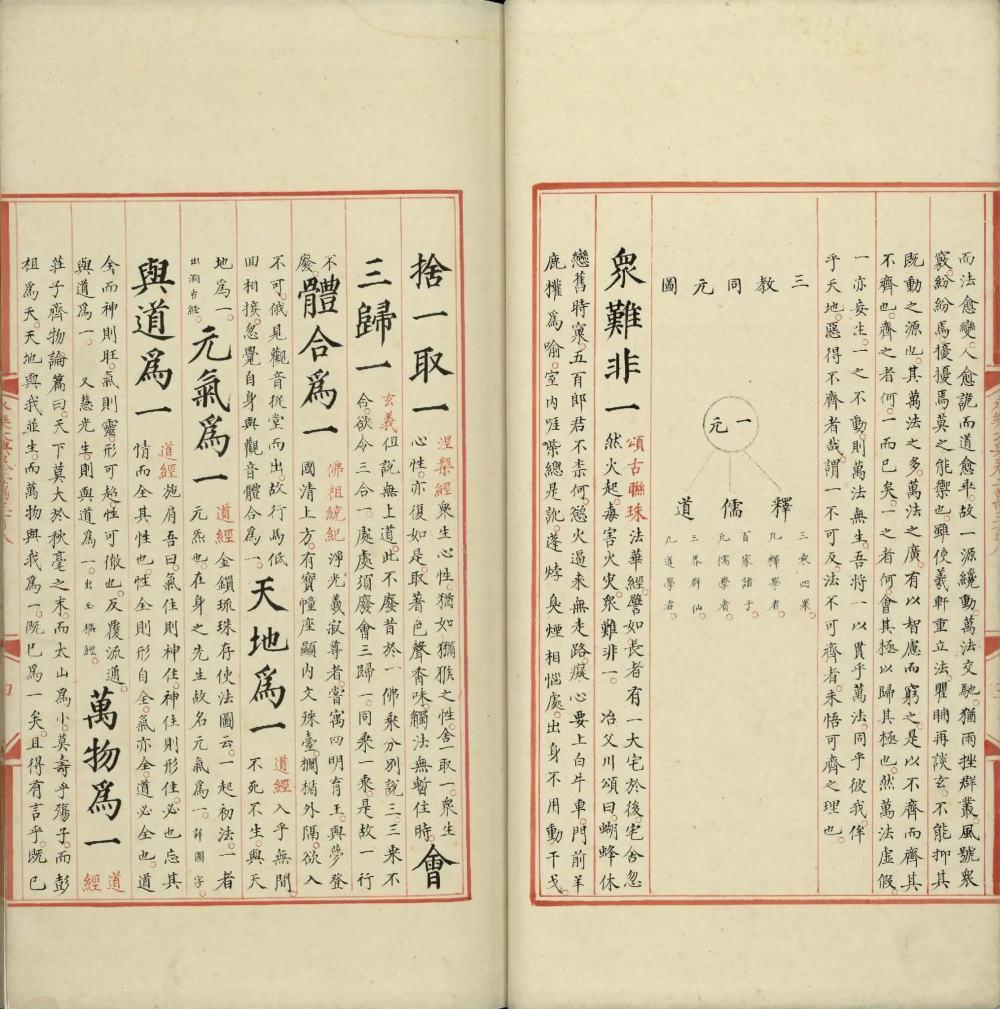 而法愈變人愈詭而道愈乖故一源纔動萬法交馳猶雨挫群叢風號衆
竅紛紛焉擾擾焉莫之能禦也雖使羲軒重立法瞿聃再談玄不能抑其
既動之源也其萬法之多萬法之廣有以智慮而窮之是以不齊而齊其
不齊也齊之者何一而已矣一之者何會其極以歸其極也然萬法虛假
一亦妄生一之不動則萬法無生吾將一以貫乎萬法同乎彼我侔
乎天地惡得不齊者哉謂一不可及法不可齊者未悟可齊之理也
三教同元圖
一元
釋 儒 道
三乘四果
九釋學者
百家諸子
凡儒學者
三界群仙
凡道學者
衆難非一
頌古聯珠法華經譬如長者有一大宅於後宅舍忽
然火起毒害火灾衆難非一 冶父川頌曰蝴蜂休
戀舊時窠五百郎君不柰何慾火逼來無走路癡心要上白牛車門前羊
鹿權爲喻室内啀喍總是訛蓬㶿臭煙相惱處出身不用動干戈
捨一取一
涅槃經衆生心性猶如獼猴之性舍一取一衆生
心性亦復如是取著色聲香味觸法無暫住時
會三歸一
玄義但說無上道此不廢昔於一佛乘分别說三三來不
合欲令三合一處處須廢會三歸一同乘一乘是故一行
不廢
體合爲一
佛祖統紀淨光義寂尊者嘗寓四明育王與夢登
國清上方有寶幢座顯内文殊臺欄楯外隔欲入
不可俄見觀音從堂而出故行馬低
回相接忽覺自身與觀音體合爲一
天地爲一
道經入乎無間
不死不生與天
地爲一
出洞古經
元氣爲一
道經金鎖琉珠存使法圖云一起初法一者
元炁也在身之先生故名元氣爲一詳圖字
與道爲一
道經施肩吾曰氣住則神住神住則形住必也忘其
情而全其性也性全則形自全氣亦全道必全也道
全而神則旺氣則靈形可超性可徹也反覆流通
與道爲一 又慧光生則與道爲一出玉樞經
萬物爲一
道經
莊子齊物論篇曰天下莫大於秋毫之末而太山爲小莫壽乎殤子而彭
祖爲夭天地與我並生而萬物與我爲一既已爲一矣且得有言乎既已